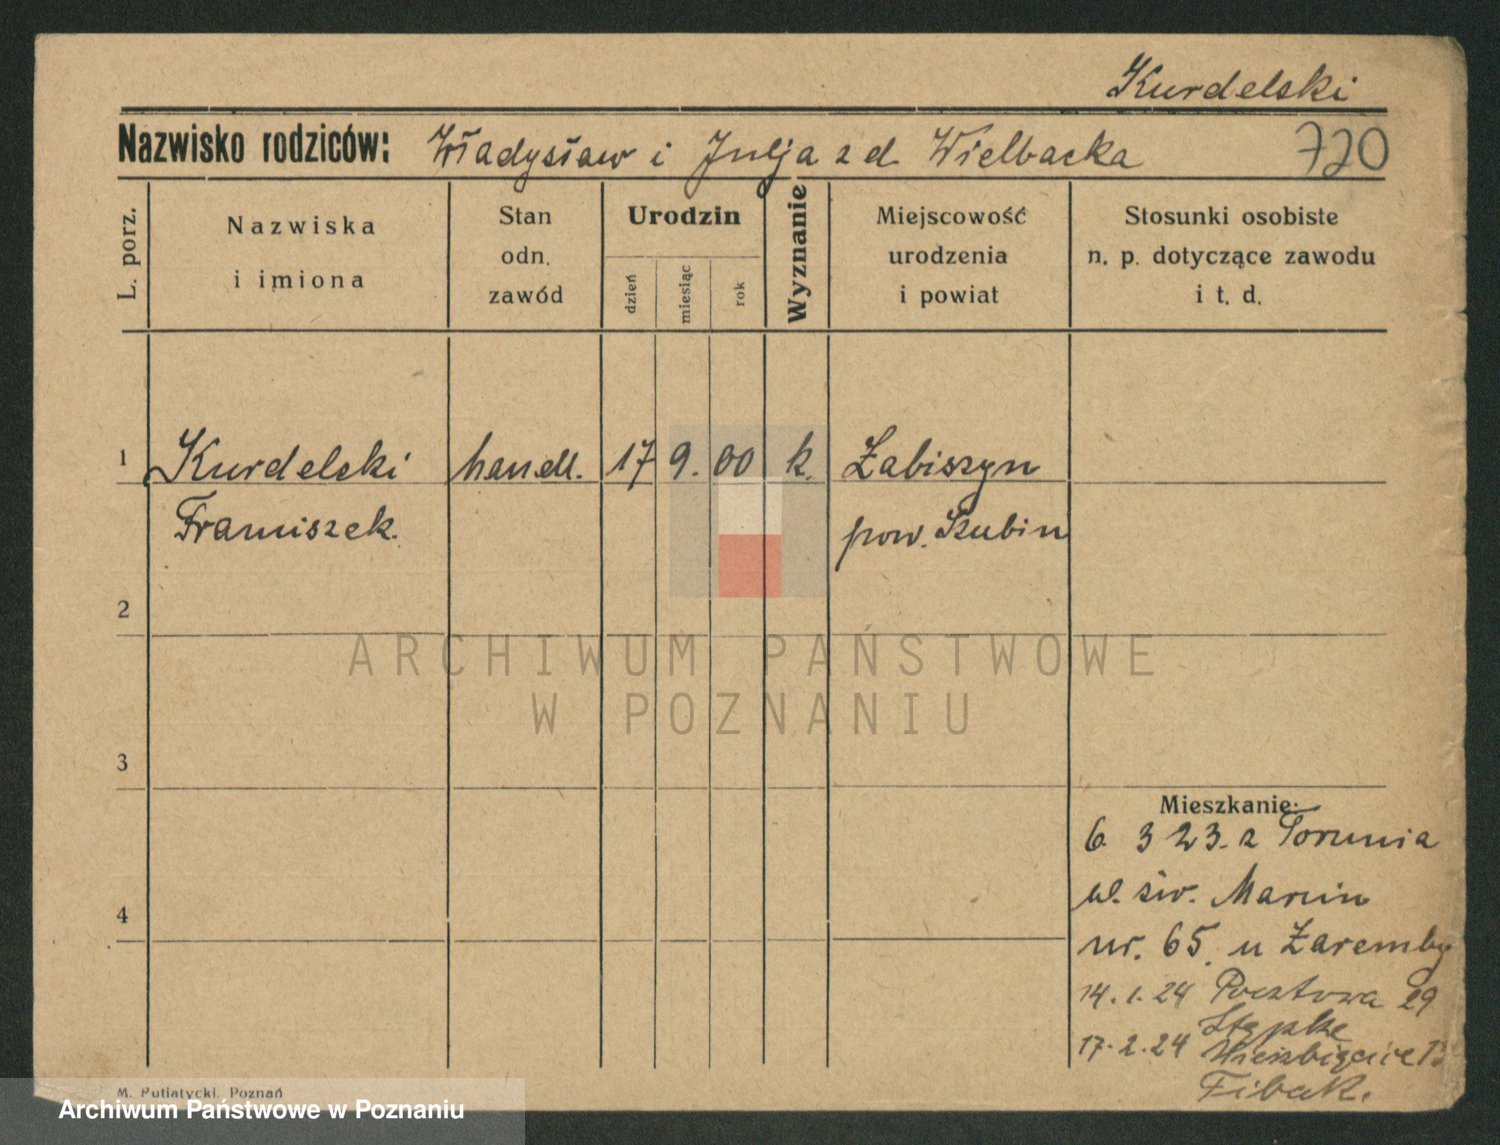 Kurdelski
Nazwisko rodziców: Władysław i Julja z d. Wielbacka 720
L. porz.
Nazwiska
i imiona
Stan
odn.
zawód
Urodzin
dzień
miesiąc
rok
Wyznanie
Miejscowość
urodzenia
i powiat
Stosunki osobiste
n. p. dotyczące zawodu
i t. d.
1 Kurdelski handl. 17 9. 00 k. Łabiszyn
Franciszek. pow. Szubin
2
ARCHIWUM PAŃSTWOWE
W POZNANIU
3
Mieszkanie:
6. 3 23. z Torunia
ul. św. Marcin
nr. 65. u Zaremby
4
14. 1. 24 Pocztowa 29
17. 2. 24
Fibak.
M. Putiatycki, Poznań
Archiwum Państwowe w Poznaniu